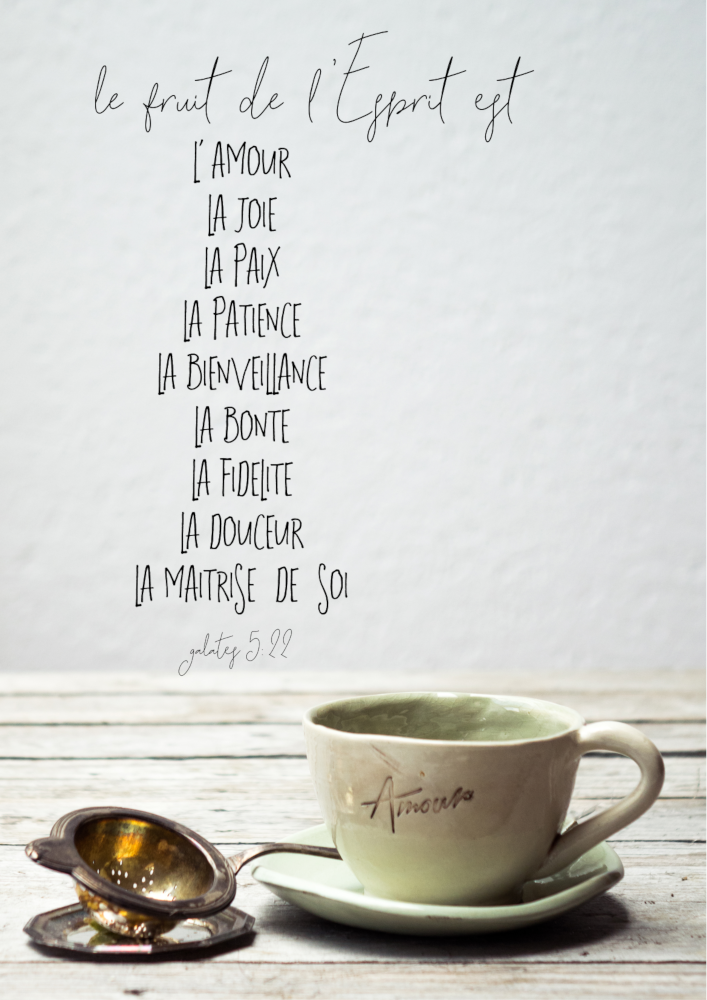 le fruit de l'Esprit est
L'AMOUR
LA JOIE
LA PAIX
LA PATIENCE
LA BIENVEILLANCE
LA BONTE
LA FIDELITE
LA DOUCEUR
LA MAITRISE DE SOI
galates 5:22
Amour